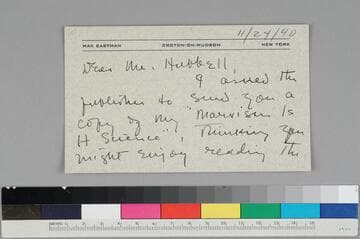 11/24/40
MAX EASTMAN CROTON-ON-HUDSON NEW YORK
Dear Mr. Hubbell,
I asked the
publisher to send you a
copy of my "Marxism Is
It Science", thinking you
might enjoy reading the